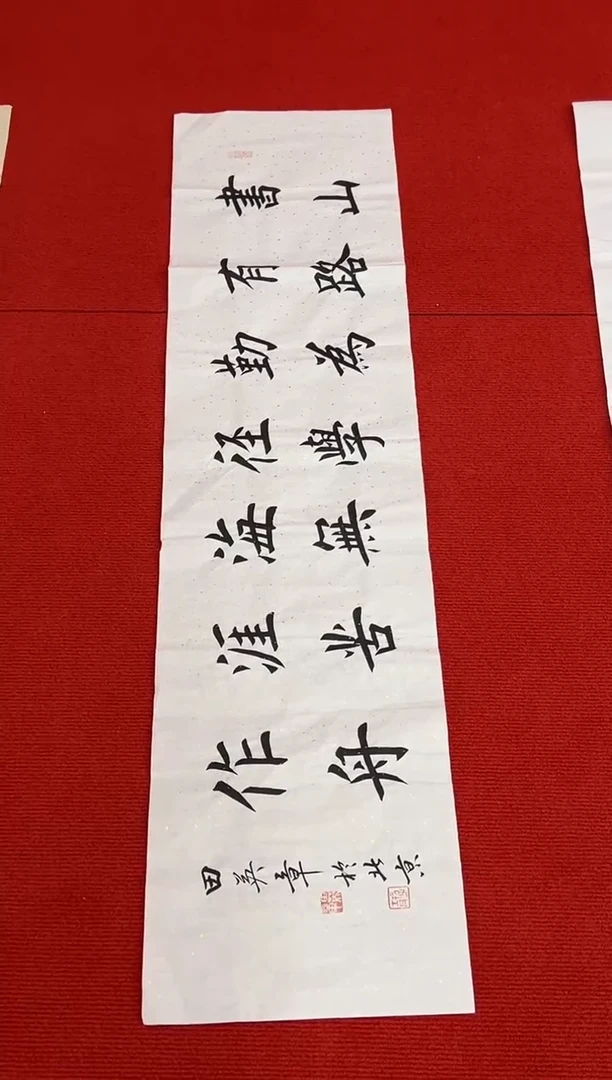 書山
有路
勤為
径學
海無
涯苦
作舟
田英章於北京